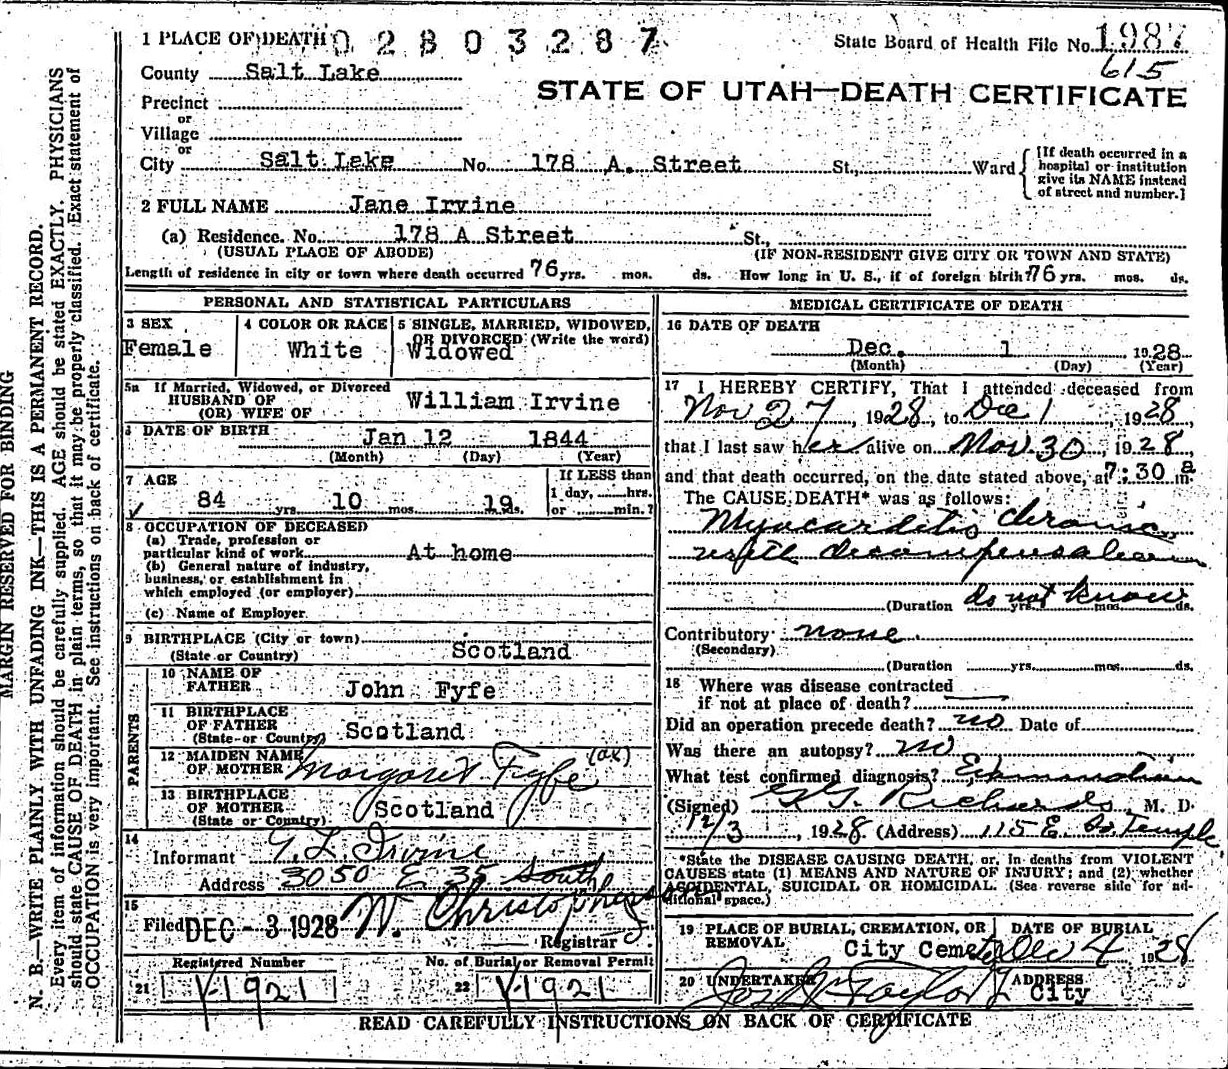 1 PLACE OF DEATH 0 2 8 0 3 2 8 7
State Board of Health File No. 1987
615
County Salt Lake
STATE OF UTAH—DEATH CERTIFICATE
Precinct
or
Village
or
City Salt Lake No. 178 A. Street St., Ward
[If death occurred in a
hospital or institution
give its NAME instead
of street and number.]
2 FULL NAME Jane Irvine
(a) Residence. No. 178 A Street St.,
(USUAL PLACE OF ABODE) (IF NON-RESIDENT GIVE CITY OR TOWN AND STATE)
Length of residence in city or town where death occurred 76 yrs. mos. ds. How long in U. S., if of foreign birth? 76 yrs. mos. ds.
PERSONAL AND STATISTICAL PARTICULARS
3 SEX
Female
4 COLOR OR RACE
White
5 SINGLE, MARRIED, WIDOWED,
OR DIVORCED (Write the word)
Widowed
5a If Married, Widowed, or Divorced
HUSBAND OF
(OR) WIFE OF William Irvine
6 DATE OF BIRTH
Jan 12 1844
(Month) (Day) (Year)
7 AGE
84 yrs. 10 mos. 19 ds.
If LESS than
1 day, hrs.
or min.?
8 OCCUPATION OF DECEASED
(a) Trade, profession or
particular kind of work At home
(b) General nature of industry,
business, or establishment in
which employed (or employer)
(c) Name of Employer
9 BIRTHPLACE (City or town)
(State or Country) Scotland
PARENTS
10 NAME OF
FATHER John Fyfe
11 BIRTHPLACE
OF FATHER
(State or Country) Scotland
12 MAIDEN NAME
OF MOTHER Margaret Fyfe (ok)
13 BIRTHPLACE
OF MOTHER
(State or Country) Scotland
14
Informant G. L. Irvine
Address 3050 E. 35 South
15
Filed DEC - 3 1928 W. Christopherson
Registrar
Registered Number No. of Burial or Removal Permit
21 V-1921 22 V-1921
MEDICAL CERTIFICATE OF DEATH
16 DATE OF DEATH
Dec. 1 1928
(Month) (Day) (Year)
17 I HEREBY CERTIFY, That I attended deceased from
Nov 27, 1928, to Dec 1, 1928,
that I last saw her alive on Nov. 30, 1928,
and that death occurred, on the date stated above, at 7:30 a m.
The CAUSE DEATH* was as follows:
Myocarditis chronic
with decompensation
(Duration do not know yrs. mos. ds.
Contributory none.
(Secondary)
(Duration yrs. mos. ds.
18 Where was disease contracted
if not at place of death?
Did an operation precede death? no Date of
Was there an autopsy? no
What test confirmed diagnosis? Examination
(Signed) G. G. Richards, M. D.
12/3, 1928 (Address) 115 E. So. Temple
*State the DISEASE CAUSING DEATH, or, In deaths from VIOLENT
CAUSES state (1) MEANS AND NATURE OF INJURY; and (2) whether
ACCIDENTAL, SUICIDAL OR HOMICIDAL. (See reverse side for ad-
ditional space.)
19 PLACE OF BURIAL, CREMATION, OR
REMOVAL City Cemetery
DATE OF BURIAL
Dec 4 1928
20 UNDERTAKER Taylor
ADDRESS
City
READ CAREFULLY INSTRUCTIONS ON BACK OF CERTIFICATE
MARGIN RESERVED FOR BINDING
N. B.—WRITE PLAINLY WITH UNFADING INK—THIS IS A PERMANENT RECORD.
Every item of information should be carefully supplied. AGE should be stated EXACTLY. PHYSICIANS
should state CAUSE OF DEATH in plain terms, so that it may be properly classified. Exact statement of
OCCUPATION is very important. See instructions on back of certificate.